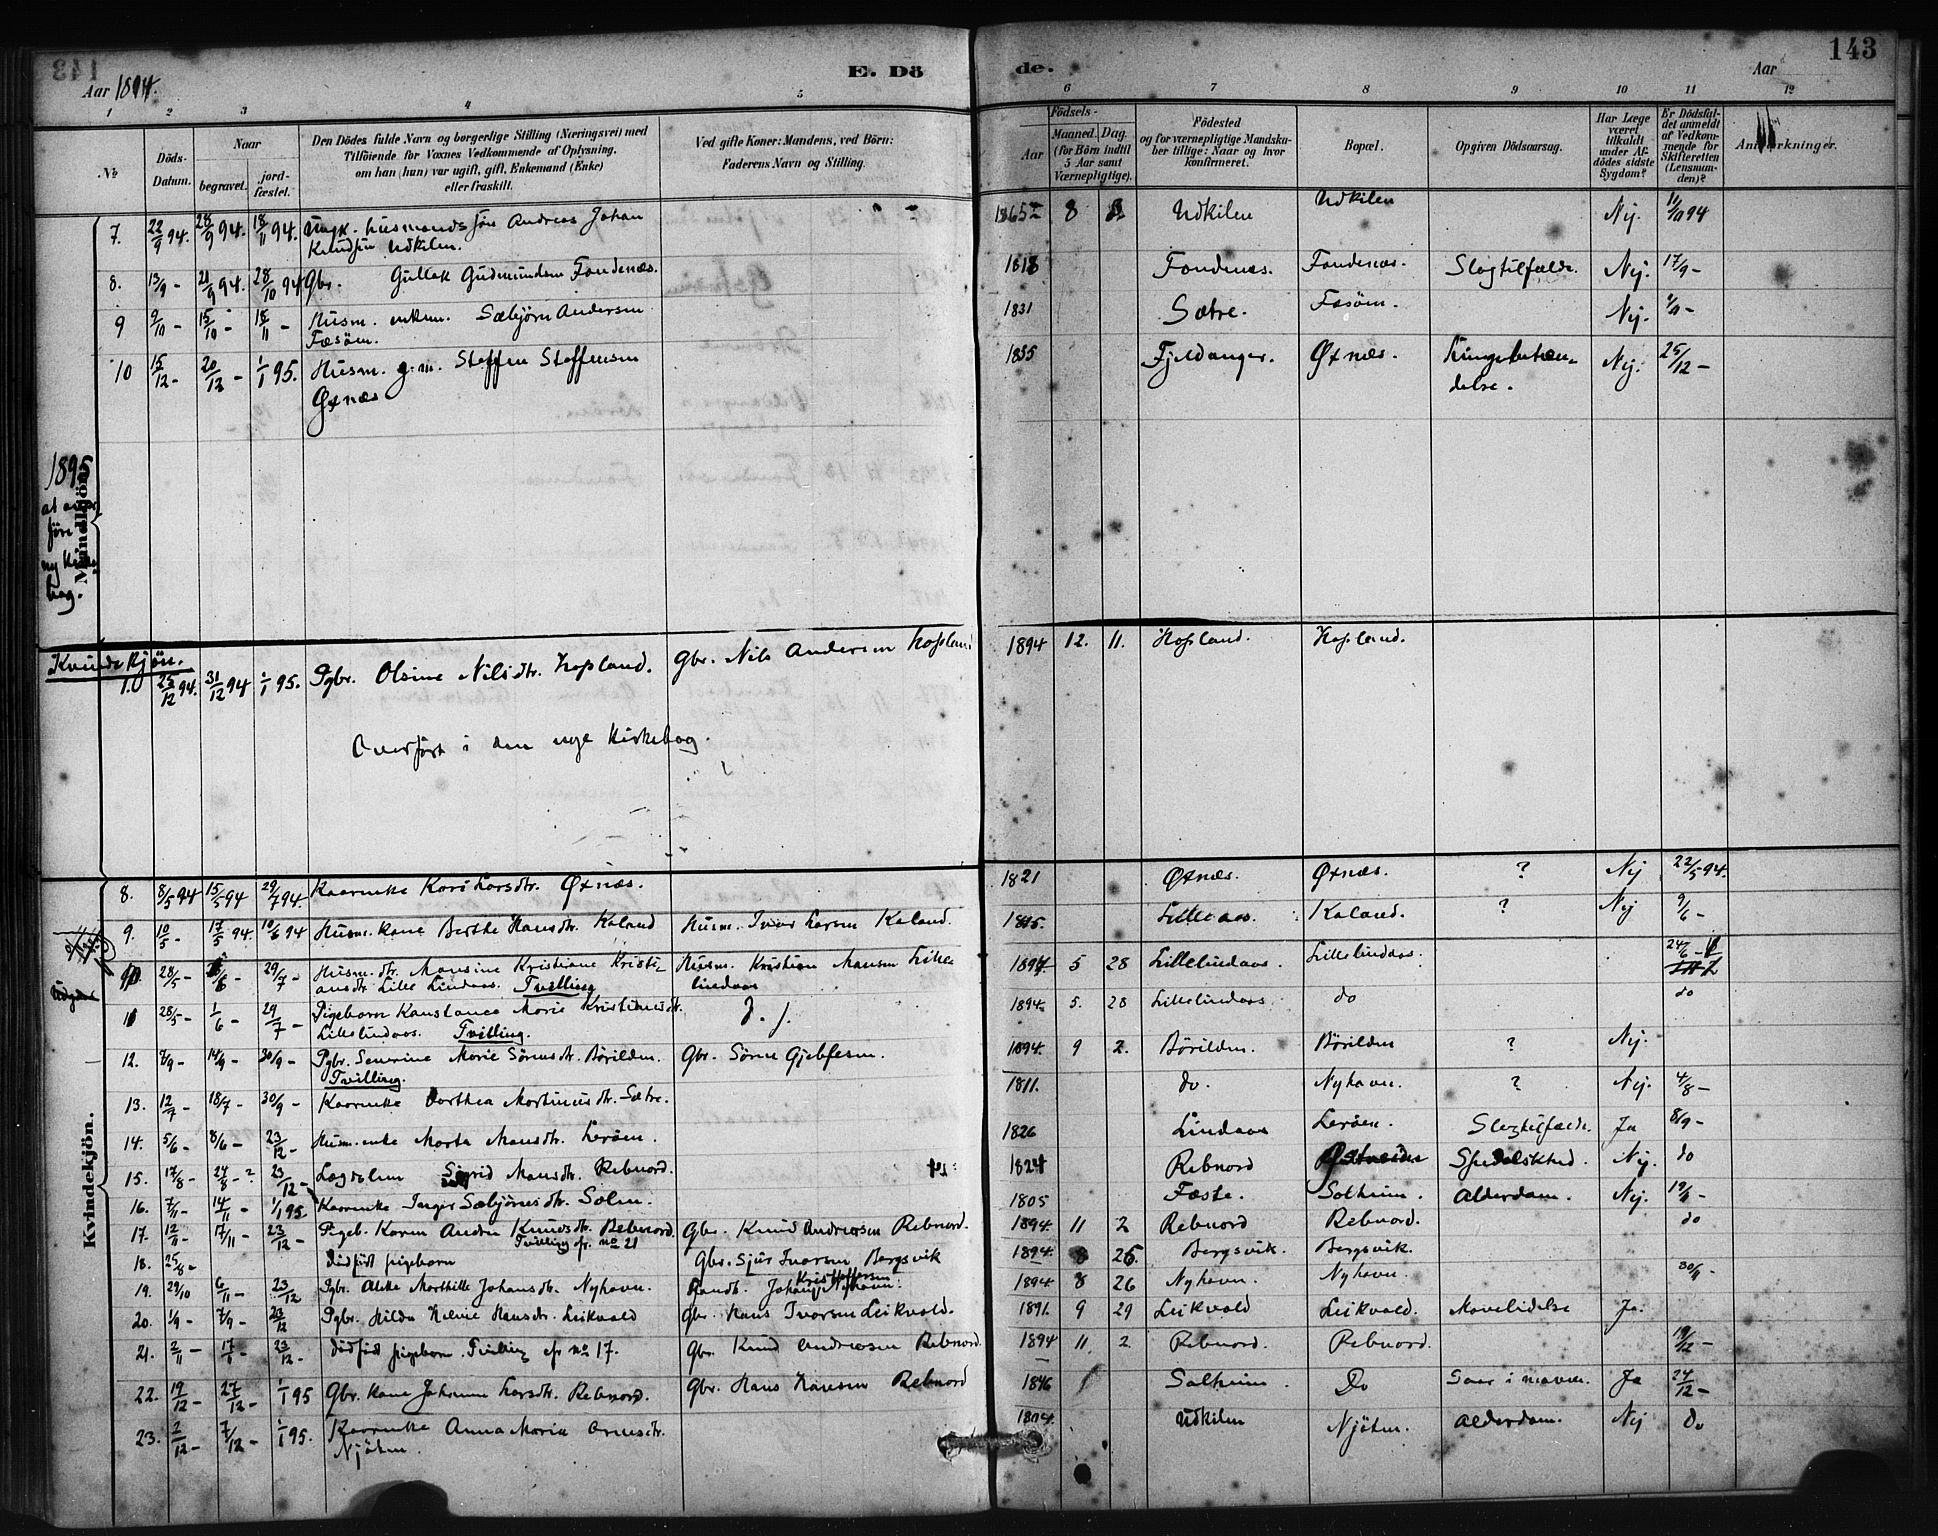 143
Aar 1894.
E. Dö
de.
Aar
143
1 2 3 4 5 6 7 8 9 10 11 12
№ Döds-Datum. Naar begravet. jord-fæstet. Den Dödes fulde Navn og borgerlige Stilling (Næringsvei) med Tilföiende for Voxnes Vedkommende af Oplysning, om han (hun) var ugift, gift, Enkemand (Enke) eller fraskilt. Ved gifte Koner: Mandens, ved Börn: Faderens Navn og Stilling. Födsels- Aar Maaned. Dag. (for Börn indtil 5 Aar samt Værnepligtige). Födested og for værnepligtige Mandska-ber tillige: Naar og hvor konfirmeret. Bopæl. Opgiven Dödsaarsag. Har Læge været tilkaldt under Af-dödes sidste Sygdom? Er Dödsfal-det anmeldt af Vedkom-mende for Skifteretten (Lensman-den)? Anmærkninger.
7. 22/9 94. 28/9 94. 18/11 94. Ungk. husmands sön Andreas Johan 1865 8 Udkilen Udkilen Nej. 11/10 94
Knudsen Udkilen.
8. 13/9 - 21/9 94. 28/10 94 Gbr. Gullak Gudmundsen Fondenæs. 1818 Fondenæs. Fondenæs. Slagtilfælde. Nej. 17/9 -
9 9/10 - 15/10 - 18/11 - Husm. enkem. Sæbjörn Andersen 1831 Sætre. Fæsöen. Nej.
Fæsöen.
10 15/12 - 20/12 - 1/1 95. Husm. g.m. Steffen Steffensen 1835 Fjeldanger. Øxnæs. Lungebetæn- Nej. 25/12 -
Øxnæs delse.
1895
Mandkjön.
ny Kirke
bog.
Kvindekjön.
1. 25/12 94. 31/12 94 1/1 95. Pgbr. Olsine Nilsdtr. Hopland. Gbr. Nils Andersen Hopland 1894 12. 11. Hopland. Hopland.
Overfört i den nye Kirkebog.
Kvindekjön.
8. 8/5 94 15/5 94 29/7 94. Kaarenke Kari Larsdtr. Øxnæs. 1821 Øxnæs. Øxnæs. ? Nej 22/5 94.
9. 10/5 - 17/5 94. 10/6 94 Husm. kone Berthe Hansdtr. Kaland Husm. Ivar Larsen Kaland. Lilleaas. Kaland. ? Nej 9/6 -
10 28/5 - 29/7 - Husm. dtr. Mansine Kristiane Kristi- Husm. Kristian Mansen Lille 1894 5 28 Lillelindaas. Lillelindaas. 24/6 -
ansdtr Lille Lindaas. Tvilling lindaas
11 28/5 - 1/6 - 29/7 - Pigebarn Konstance Marie Kristiansdtr. 1894. 5. 28 Lillelindaas do do
Lillelindaas. Tvilling.
12. 7/9 - 14/9 - 30/9 - Pgbr. Severine Marie Sörensdtr. Börilden. Gbr. Sören Gjebfesen. 1894. 9 2. Börilden. Börilden ? Nej.
Tvilling.
13. 12/7 - 18/7 - 30/9 - Kaarenke Dorthea Mortinusdtr. Sætre. 1811. do. Nyhavn. ? Nej. 4/8 -
14. 5/6 - 8/6 - 23/12 - Husm. enke Marta Mansdtr. Leröen. 1826 Lindaas Leröen. Slagtilfælde. Ja 8/9 -
15. 17/8 - 24/8 - ? 23/12 - Lægdslem Sigrid Mansdtr. Rebnord. 1824 Rebnord Spedalskhed. Nej. do
16. 7/11 - 14/11 - 1/1 95. Kaarenke Inger Sæbjörnsdtr. Solem. 1805 Fæste. Solheim. Alderdom. Nej.
17. 12/11 - 17/11 - 23/12 - Pigeb. Karen Andrea Knudsdtr. Rebnord. Gbr. Knud Andreasen Rebnord. 1894. 11 2 Rebnord Rebnord. do
Tvilling cfr. no 21
18. 25/8 - dödfödt pigebarn Gbr. Sjur Ivarsen Bergsvik 1894. 8 25 Bergsvik. Bergsvik.
19. 29/10 6/11 - 23/12 Pgbr. Alette Marthille Johansdtr. Nyhavn. Johan Kristoffersen Nyhavn. 1894 8 26 Nyhavn. Nyhavn. 30/9 -
20. 1/9 - 7/9 - 23/12 Pgbr. Hilda Helene Hansdtr. Leikvold Gbr. Hans Ivarsen Leikvold. 1891. 9 29 Leikvold Leikvold. Mavelidelse Ja.
21. 2/11 - 17/11 - 23/12 - dödföd pigebarn. Tvilling cfr no 17. Gbr. Knud Andreasen Rebnord. 1894 11 2. Rebnord. Rebnord. 19/12 -
22. 19/12 - 27/12 - 1/1 95 Gbr. kone Johanne Larsdtr. Rebnord. Gbr. Hans Hansen Rebnord 1846 Solheim. Do Saar i maven. Ja 24/12 -
23. 2/12 - 7/12 - 1/1 95. Kaarenke Anna Maria Arnesdtr. 1804. Udkilen Njöten. Alderdom. Nej Do
Njöten